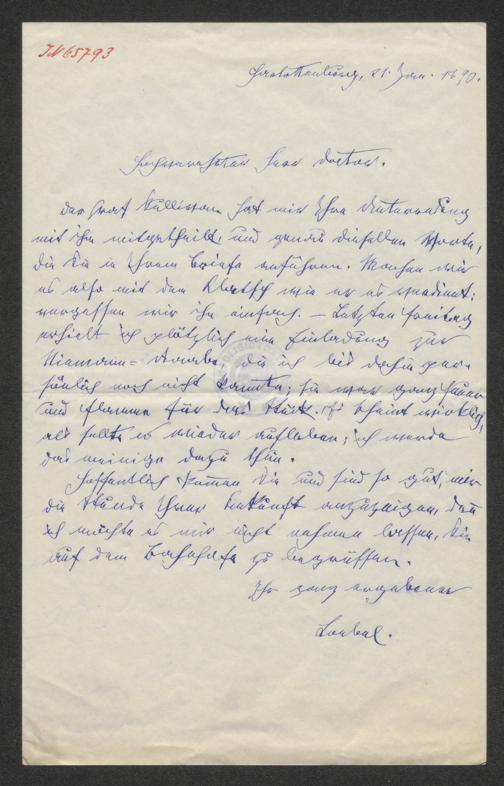 IN 65793
Charlottenburg, 21. Jan. 1890.
Hochverehrter Herr Doctor.
Der Graf hat mir Ihre Unterredung
mit ihm mitgetheilt, und genau dieselben Worte,
die Sie in Ihrem Briefe anführen. Machen wir
es also mit dem Klatsch wie er es verdient:
vergessen wir ihn einfach. – Letzten Freitag
erhielt ich plötzlich eine Einladung zur
Niemann-Raabe, die ich bis dahin per-
sönlich noch nicht kannte; sie war ganz Feuer
und Flamme für das Stück. Es scheint wirklich,
als sollte es wieder aufleben; ich werde
das meinige dazu thun.
Hoffentlich kommen Sie und sind so gut, mir
die Stunde Ihrer Ankunft anzuzeigen, denn
ich möchte es mir nicht nehmen lassen, Sie
auf dem Bahnhofe zu begrüssen.
Ihr ganz ergebener